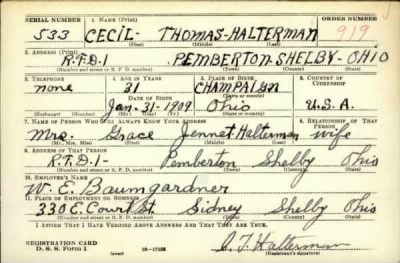 SERIAL NUMBER 1. NAME (Print) ORDER NUMBER
533 CECIL- THOMAS-HALTERMAN 919
(First) (Middle) (Last)
2. ADDRESS (Print)
R.F.D.1- PEMBERTON-SHELBY-OHIO
(Number and street or R. F. D. number) (Town) (County) (State)
3. TELEPHONE 4. AGE IN YEARS 5. PLACE OF BIRTH 6. COUNTRY OF CITIZENSHIP
none 31 CHAMPAIGN
DATE OF BIRTH (Town or county)
Jan. 31-1909 Ohio U.S.A.
(Exchange) (Number) (Mo.) (Day) (Yr.) (State or country)
7. NAME OF PERSON WHO WILL ALWAYS KNOW YOUR ADDRESS 8. RELATIONSHIP OF THAT PERSON
Mrs. Grace Jennet Halterman Wife
(Mr., Mrs., Miss) (First) (Middle) (Last)
9. ADDRESS OF THAT PERSON
R.F.D.1- Pemberton Shelby Ohio
(Number and street or R. F. D. number) (Town) (County) (State)
10. EMPLOYER'S NAME
W. E. Baumgardner
11. PLACE OF EMPLOYMENT OR BUSINESS
330 E. Court St. Sidney Shelby Ohio
(Number and street or R. F. D. number) (Town) (County) (State)
I AFFIRM THAT I HAVE VERIFIED ABOVE ANSWERS AND THAT THEY ARE TRUE.
REGISTRATION CARD
D. S. S. Form 1 C. T. Halterman